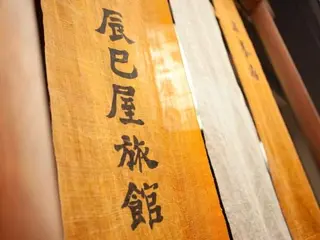 辰巳屋旅館